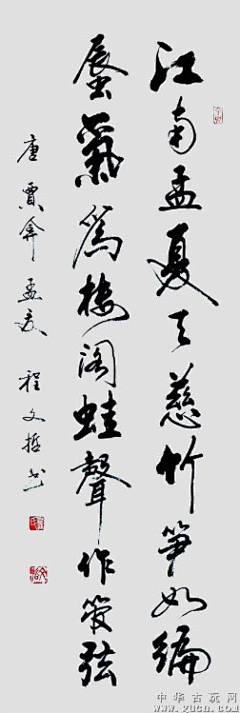 江南孟夏天慈竹笋如編
蜃氣爲樓閣蛙聲作管弦
唐賈弇孟夏程文哲书
中华古玩网
www.gucn.com